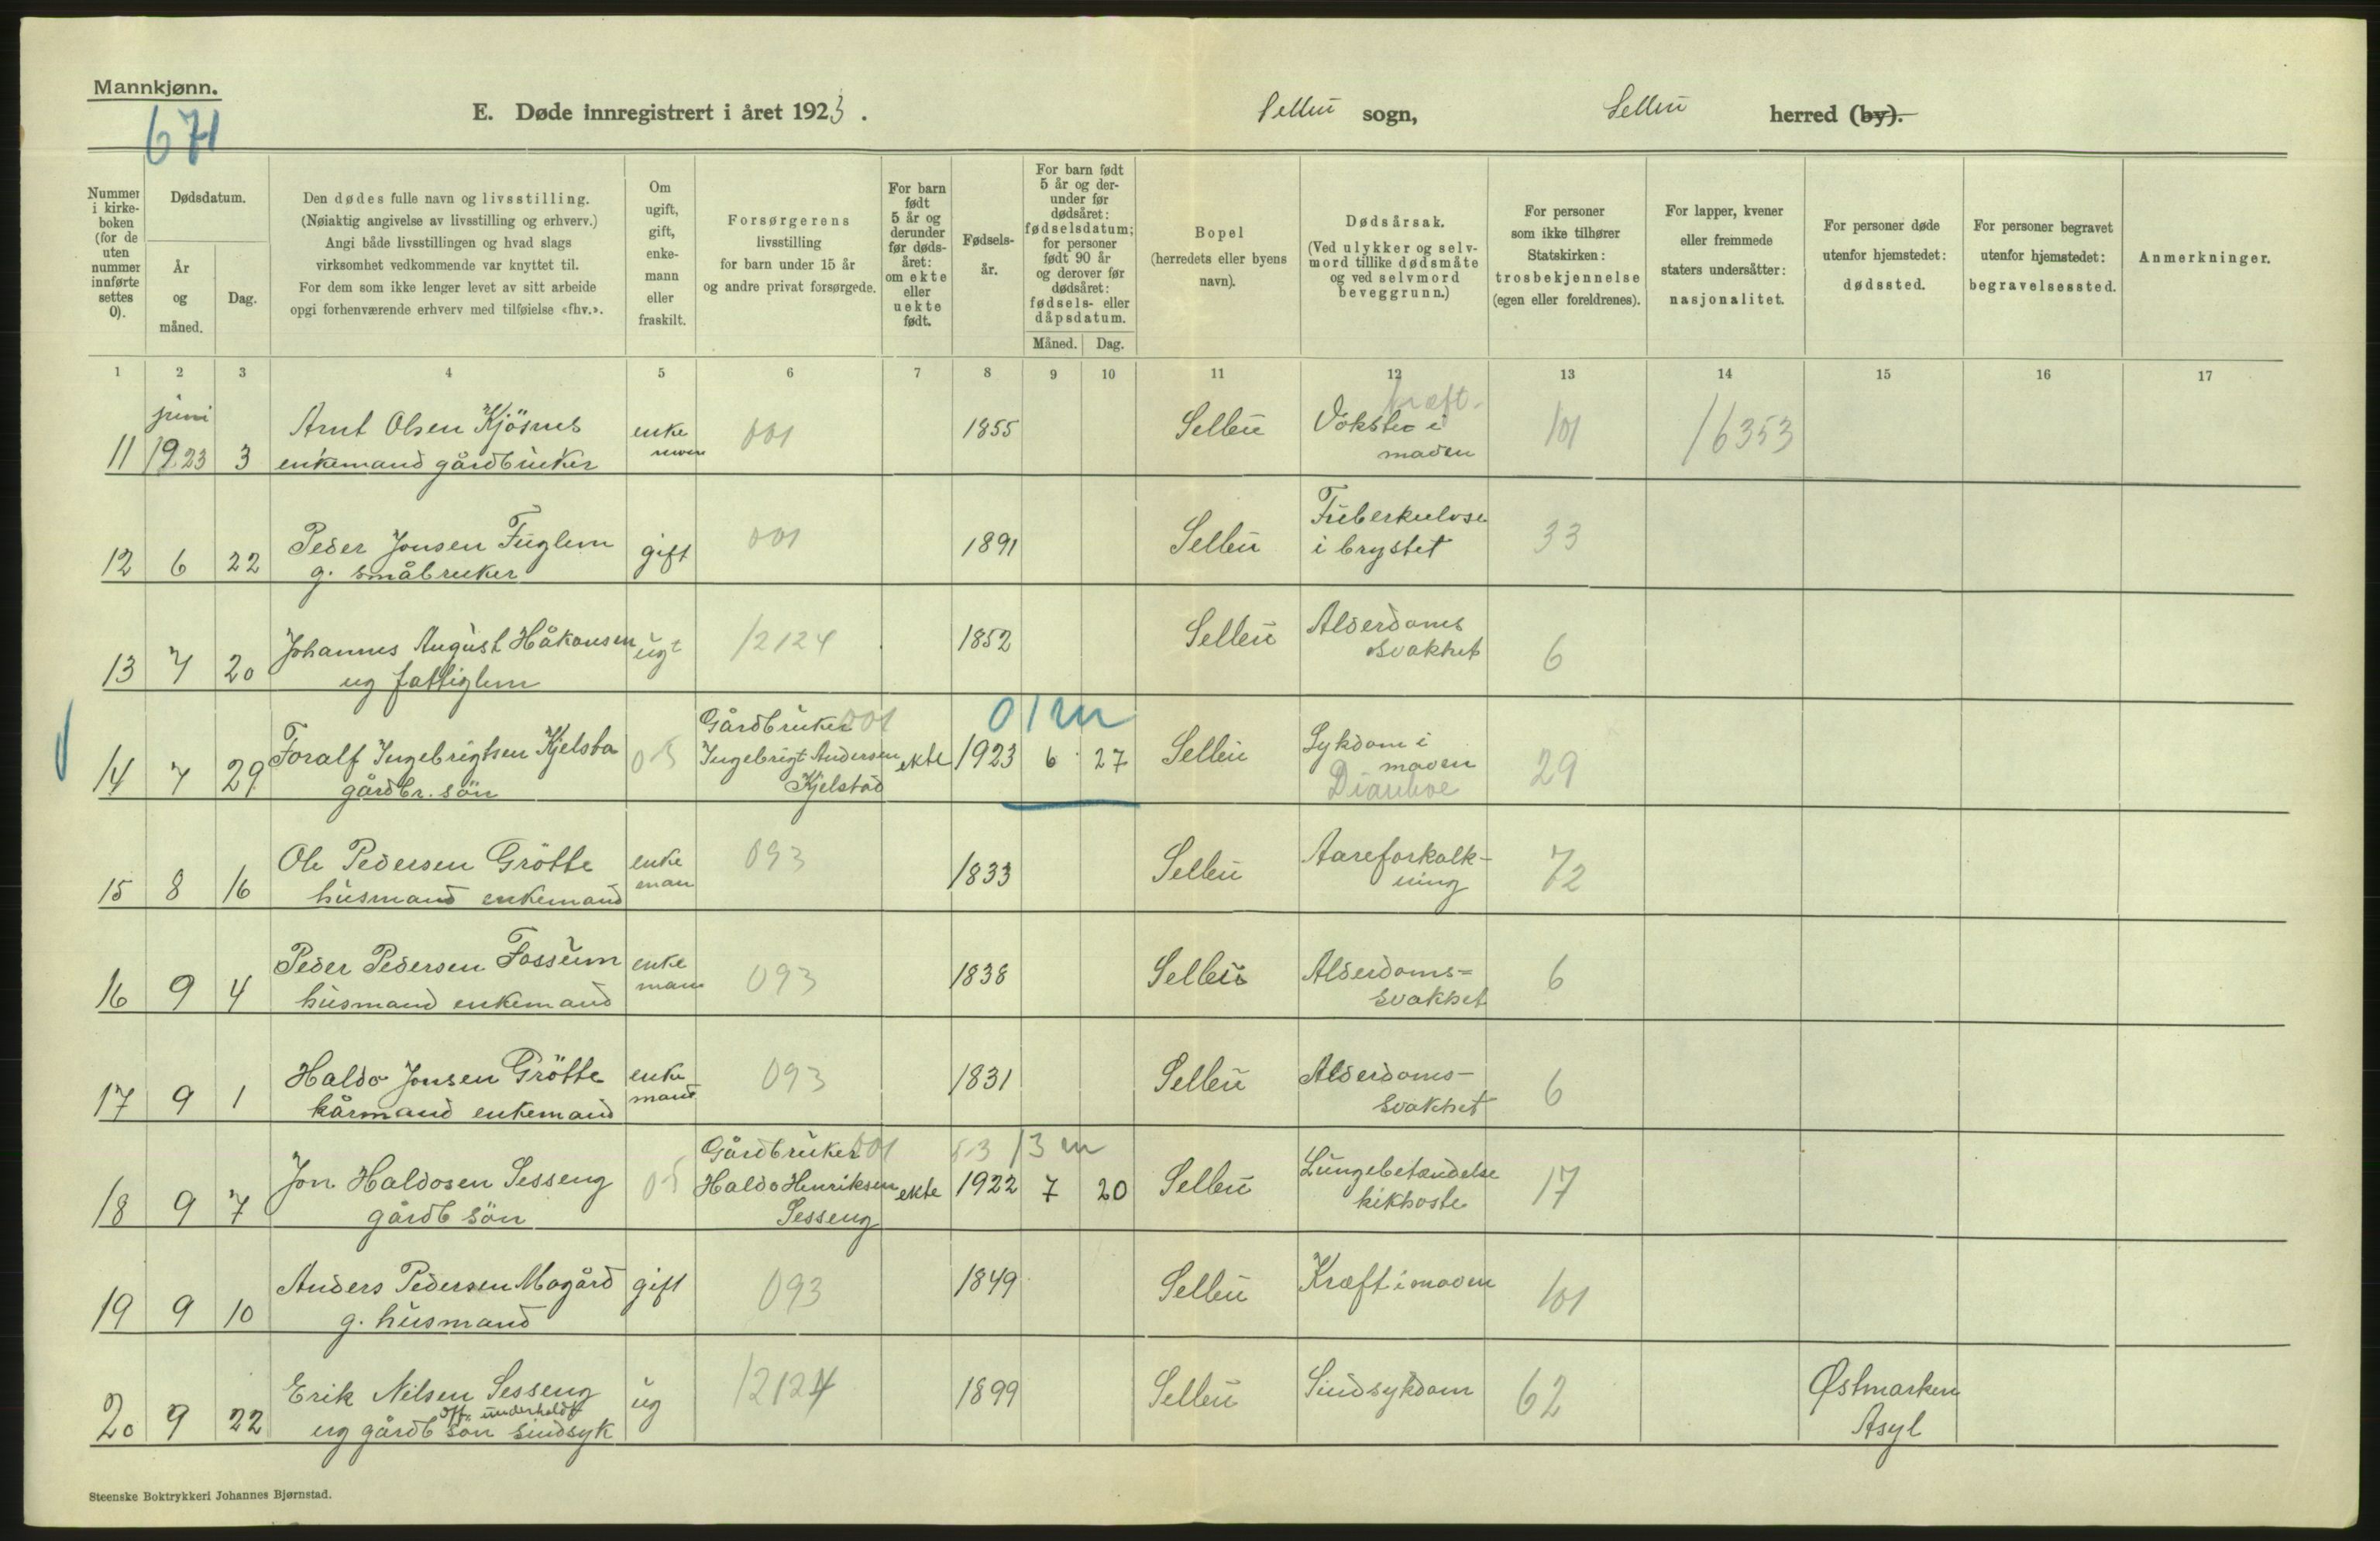 Mannkjønn.
671
E. Døde innregistrert i året 1923.
Selbu sogn,
Selbu herred (by).
Nummer i kirke-boken (for de uten nummer innførte settes 0).
Dødsdatum.
År og måned.
Dag.
Den dødes fulle navn og livsstilling.
(Nøiaktig angivelse av livsstilling og erhverv.)
Angi både livsstillingen og hvad slags
virksomhet vedkommende var knyttet til.
For dem som ikke lenger levet av sitt arbeide
opgi forhenværende erhverv med tilføielse «fhv.».
Om ugift, gift, enke-mann eller fraskilt.
Forsørgerens
livsstilling
for barn under 15 år
og andre privat forsørgede.
For barn født 5 år og derunder før døds-året: om ekte eller uekte født.
Fødsels-år.
For barn født 5 år og der-under før dødsåret: fødselsdatum; for personer født 90 år og derover før dødsåret: fødsels- eller dåpsdatum.
Måned.
Dag.
Bopel
(herredets eller byens
navn).
Dødsårsak.
(Ved ulykker og selv-
mord tillike dødsmåte
og ved selvmord
beveggrunn.)
For personer
som ikke tilhører
Statskirken:
trosbekjennelse
(egen eller foreldrenes).
For lapper, kvener
eller fremmede
staters undersåtter:
nasjonalitet.
For personer døde
utenfor hjemstedet:
dødssted.
For personer begravet
utenfor hjemstedet:
begravelsessted.
Anmerkninger.
1 2 3 4 5 6 7 8 9 10 11 12 13 14 15 16 17
juni Arnt Olsen Kjösnes enke 001 1855 Selbu kræft. Vökster i 101 16353
11 1923 3 enkemand gårdbruker maven
Peder Jonsen Fuglem 001 Tuberkulose
12 6 22 g. småbruker gift 1891 Selbu i brystet 33
Johannes August Håkonsen ugt 12124 1852 Selbu Alderdoms
13 7 20 ug fattiglem svakhet 6
Gårdbruker 001 01m
Toralf Ingebrigtsen Kjelsta 05 Ingebrigt Andersen ekte 1923 6 27 Selbu Sykdom i maven
14 7 29 gårdbr. sön Kjelstad Diarrhoe 29
Ole Pedersen Grötte enke 093 1833 Selbu Aareforkalk-
15 8 16 husmand enkemand man ning 72
Peder Pedersen Fossum enke 093 1838 Selbu Alderdoms=
16 9 4 husmand enkemand man svakhet 6
Haldo Jonsen Grötte enke 093 1831 Selbu Alderdoms-
17 9 1 kårmand enkemand mand svakhet 6
Gårdbruker 001 13 m
Jon Haldosen Sesseng 05 Haldo Henriksen ekte 1922 7 20 Selbu Lungebetændelse
18 9 7 gårdb sön Sesseng kikhoste 17
Anders Pedersen Mogård gift 093 1849 Selbu Kræft i maven 101
19 9 10 g. husmand
Erik Nilsen Sesseng ug 12124 1899 Selbu Sindsykdom 62 Østmarken
off. underholdt
20 9 22 ug gårdb sön sindsyk Asyl
Steenske Boktrykkeri Johannes Bjørnstad.